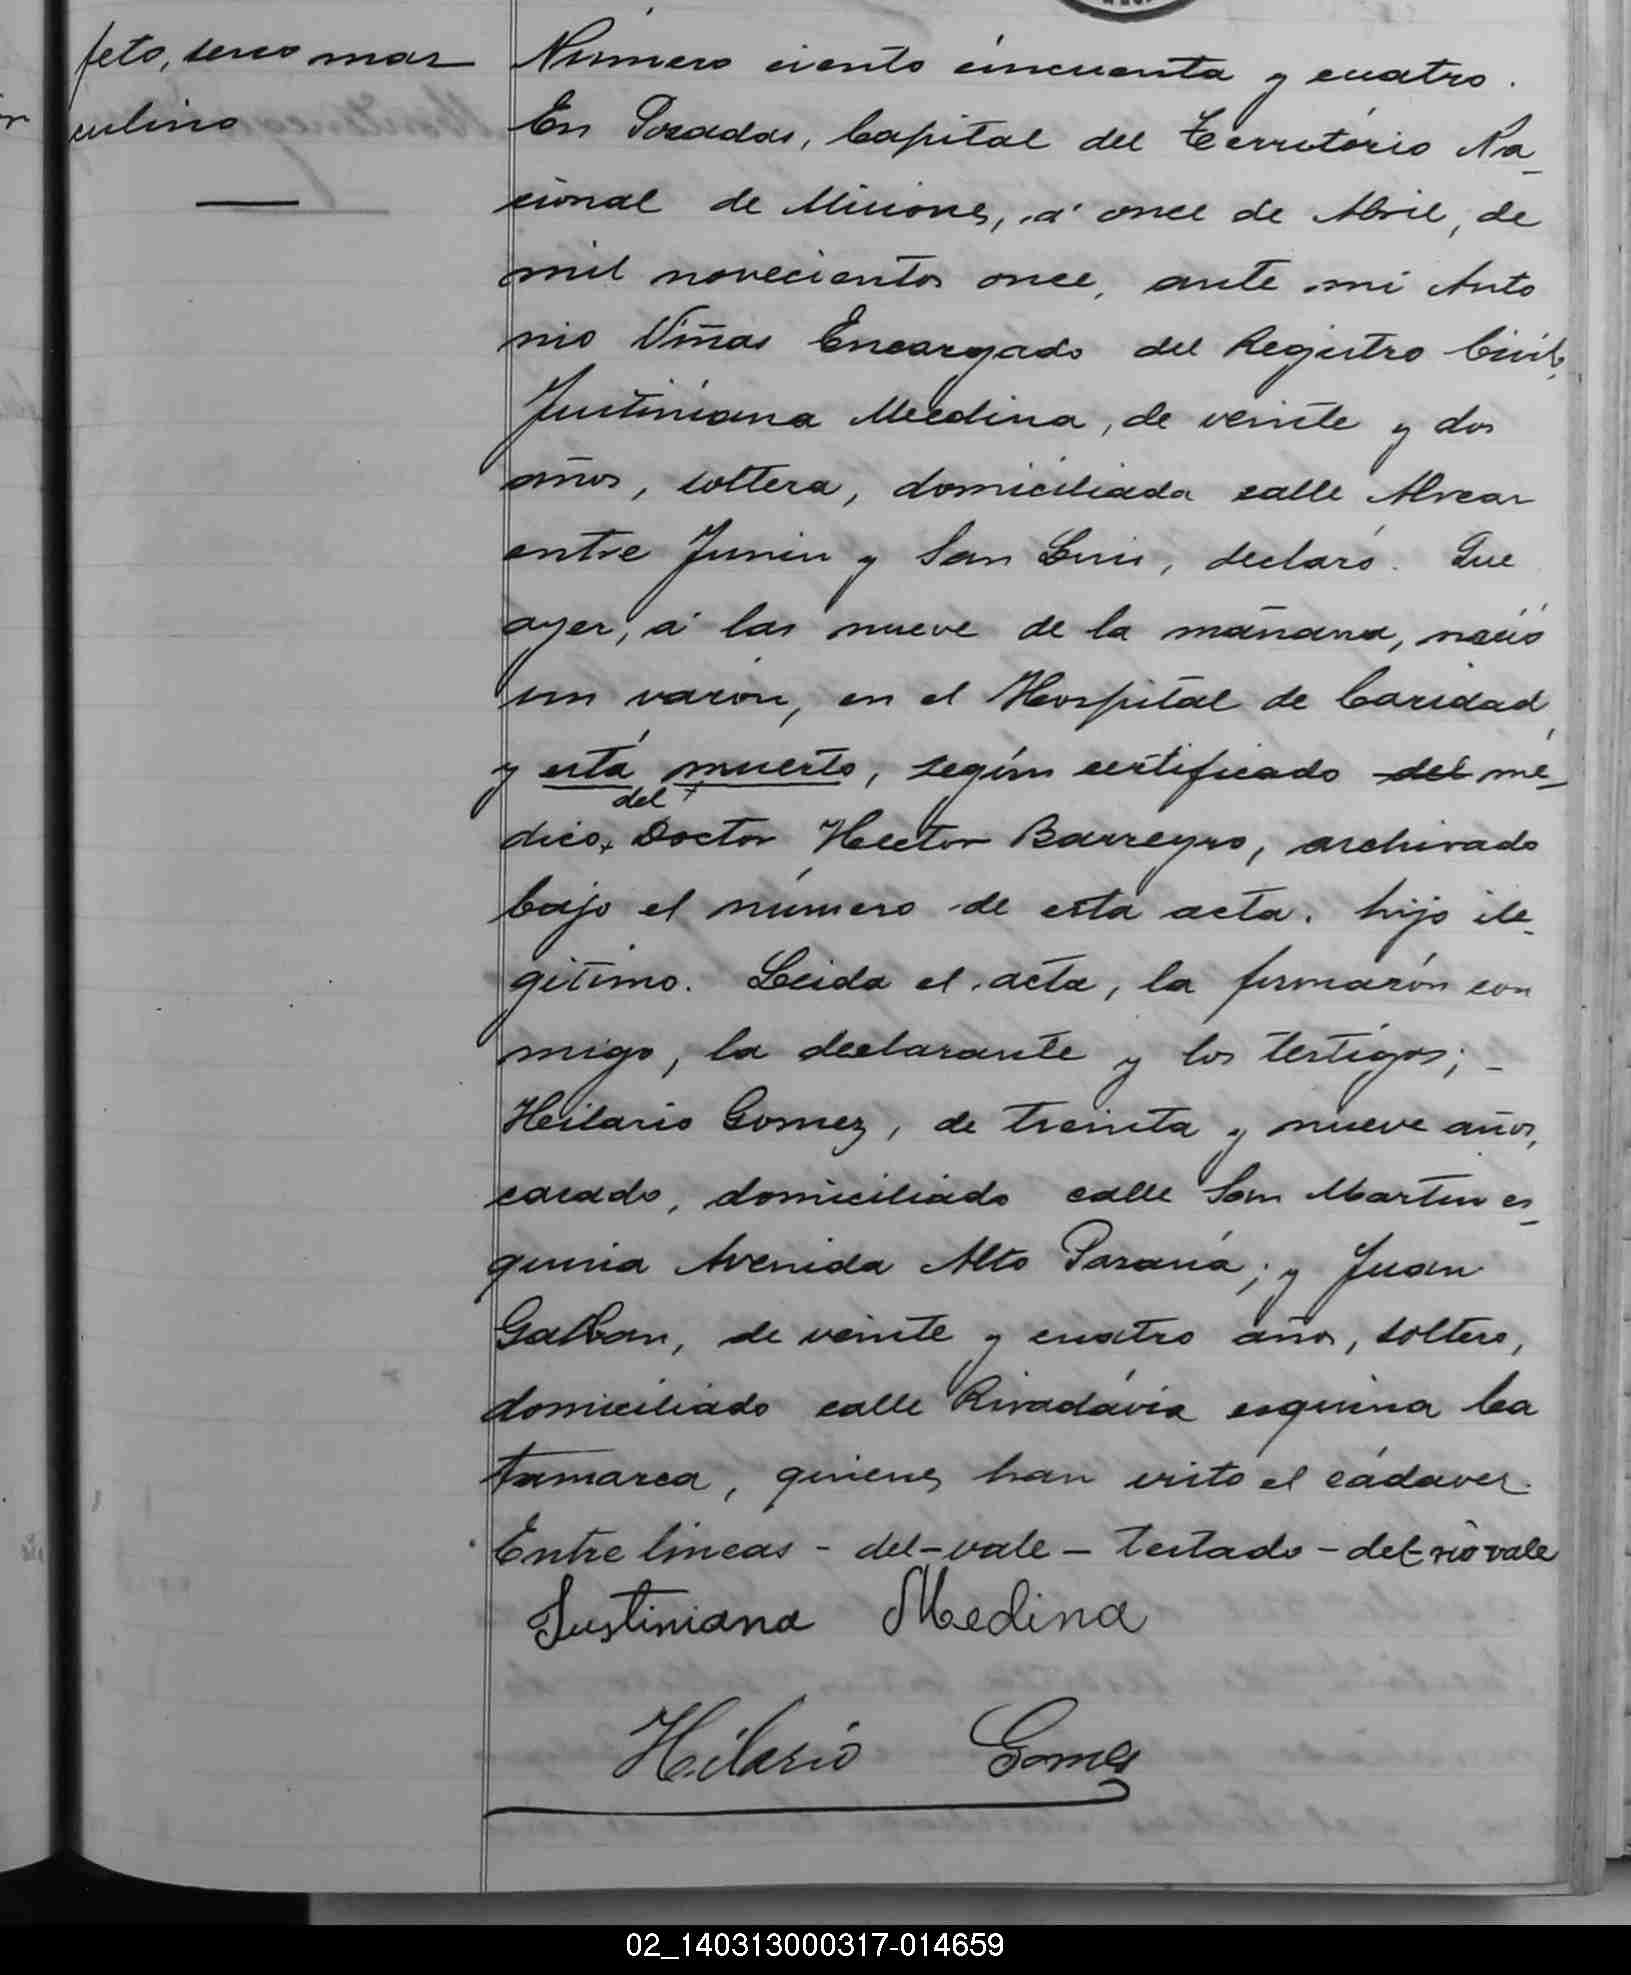 feto, sexo mas
culino
Número ciento cincuenta y cuatro.
En Posadas, Capital del Territorio Na-
cional de Misiones, á once de Abril, de
mil novecientos once, ante mi Anto
nio Viñas Encargado del Registro Civil,
Justiniana Medina, de veinte y dos
años, soltera, domiciliada calle Alvear
entre Junin y San Luis, declaró. Que
ayer, á las nueve de la mañana, nació
un varón, en el Hospital de Caridad,
y está muerto, según certificado del mé-
del
dico, Doctor Hector Barreyro, archivado
bajo el número de esta acta. hijo ile-
gitimo. Leida el acta, la firmarón con
migo, la declarante y los testigos; -
Heilario Gomez, de treinta y nueve años,
casado, domiciliado calle San Martin es-
quina Avenida Alto Paraná; y Juan
Galvan, de veinte y cuatro años, soltero,
domiciliado calle Rivadávia esquina Ca
tamarca, quienes han visto el cádaver.
Entre lineas - del - vale - testado - del - no vale
Justiniana Medina
Hilario Gomes
02_140313000317-014659